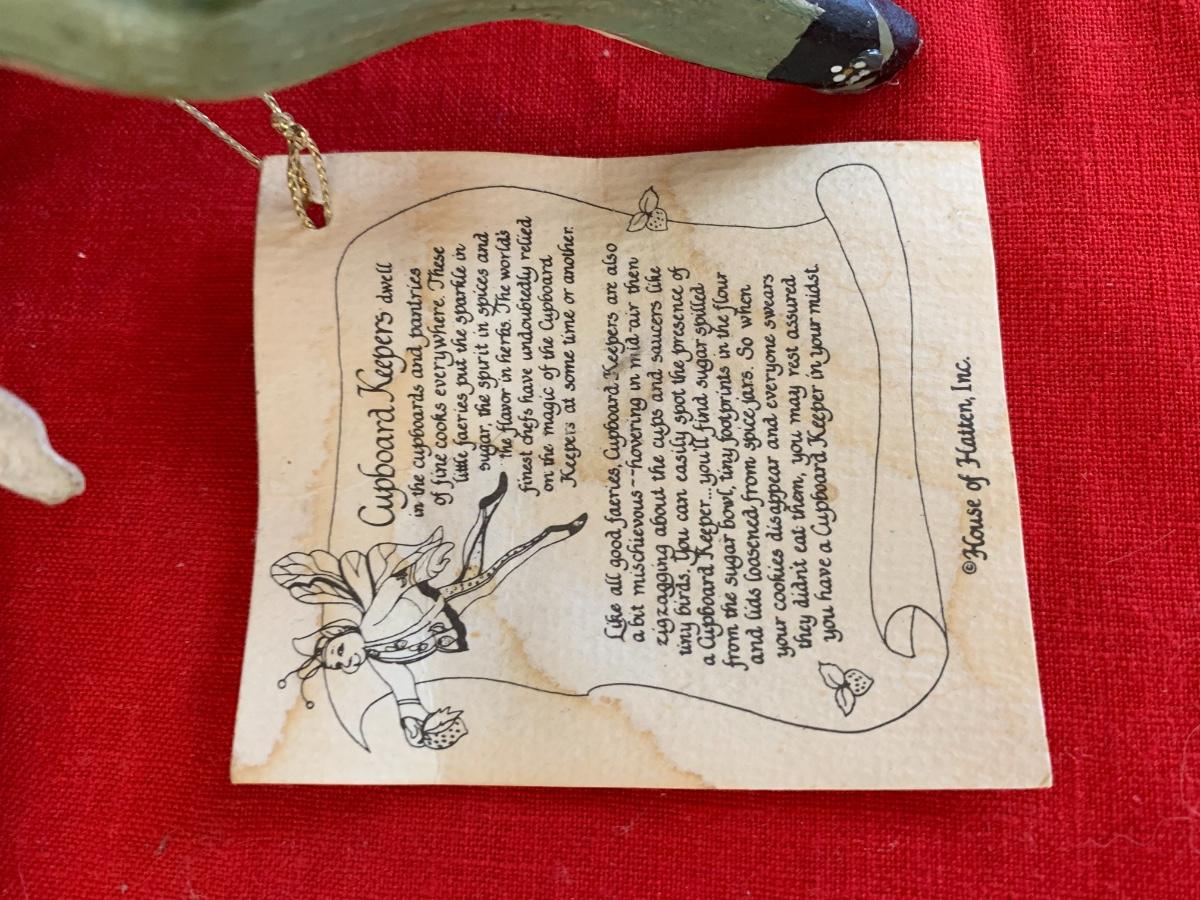 Cupboard Keepers dwell
in the cupboards and pantries
of fine cooks everywhere. These
little faeries put the sparkle in
sugar, the spirit in spices and
the flavor in herbs. The world's
finest chefs have undoubtedly relied
on the magic of the Cupboard
Keepers at some time or another.
Like all good faeries, Cupboard Keepers are also
a bit mischievous--hovering in mid-air then
zigzagging about the cups and saucers like
tiny birds. You can easily spot the presence of
a Cupboard Keeper...you'll find sugar spilled
from the sugar bowl, tiny footprints in the flour
and lids loosened from spice jars. So when
your cookies disappear and everyone swears
they didn't eat them, you may rest assured
you have a Cupboard Keeper in your midst.
©House of Hatten, Inc.